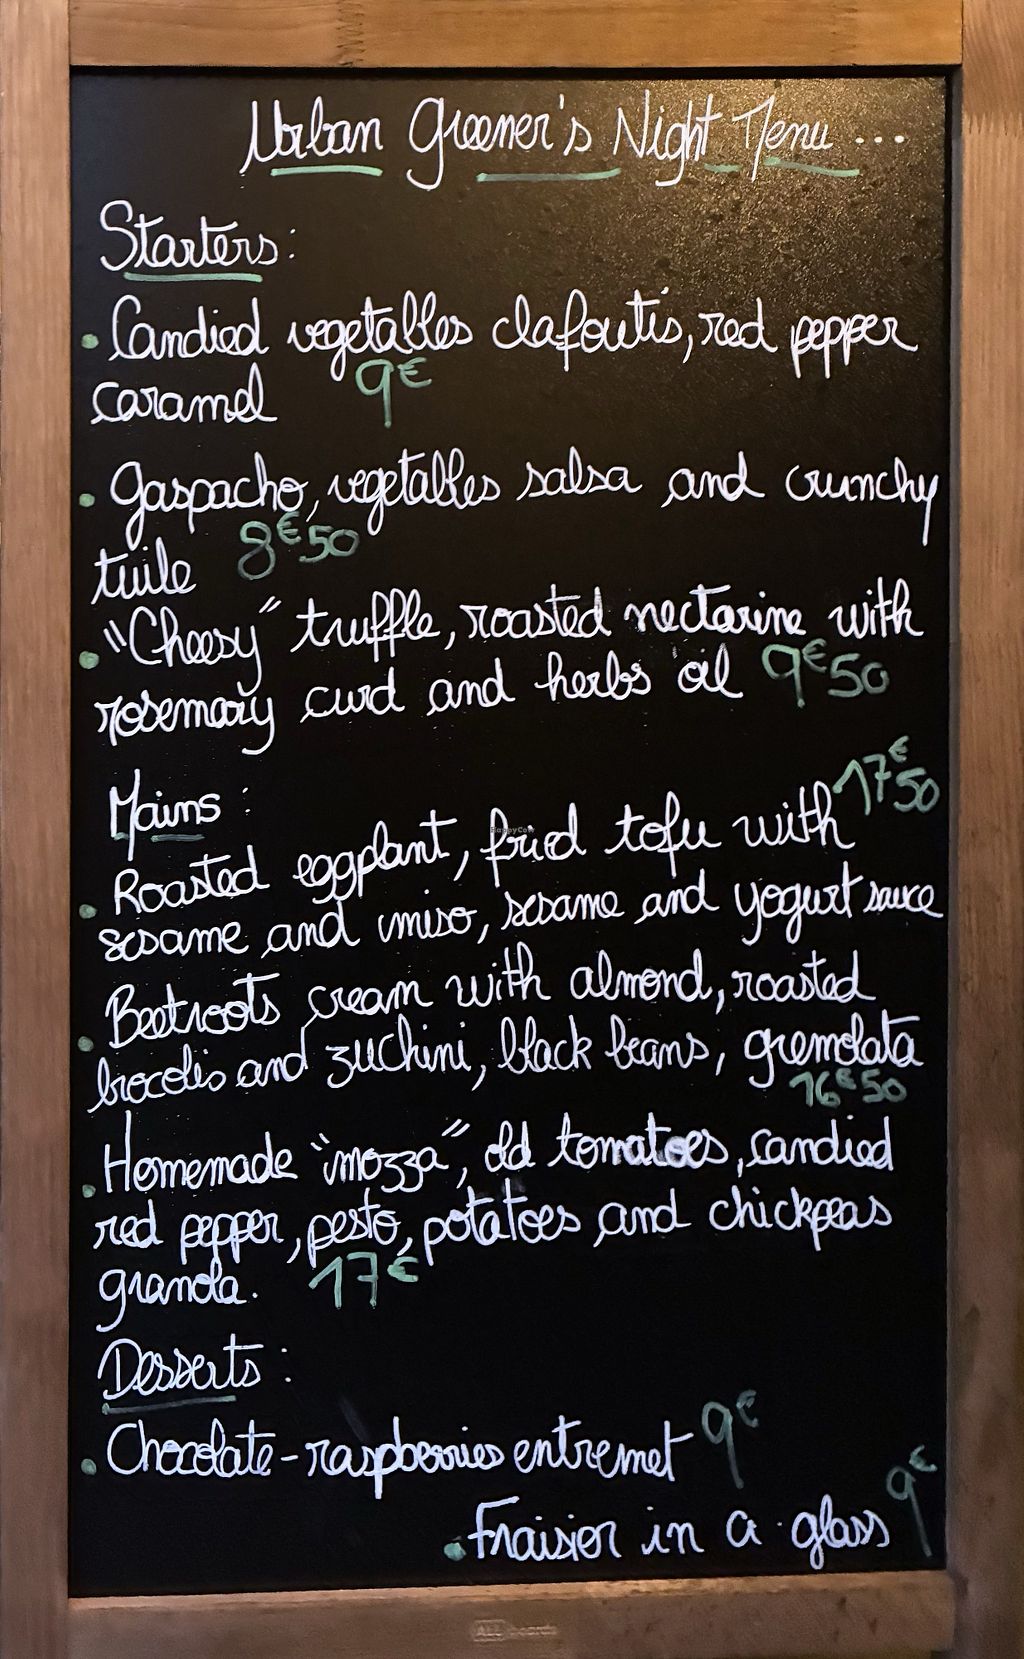 Urban Greener's Night Menu ...
Starters :
• Candied vegetables clafoutis, red pepper
caramel 9€
• Gaspacho, vegetables salsa and crunchy
tuile 8€50
• "Cheesy" truffle, roasted nectarine with
rosemary curd and herbs oil 9€50
Mains :
• Roasted eggplant, fried tofu with 17€50
sesame and miso, sesame and yogurt sauce
• Beetroots cream with almond, roasted
brocolis and zuchini, black beans, gremolata
16€50
• Homemade "mozza", old tomatoes, candied
red pepper, pesto, potatoes and chickpeas
granola. 17€
Desserts :
• Chocolate-raspberries entremet 9€
• Fraisier in a glass 9€
HappyCow
ALL boards